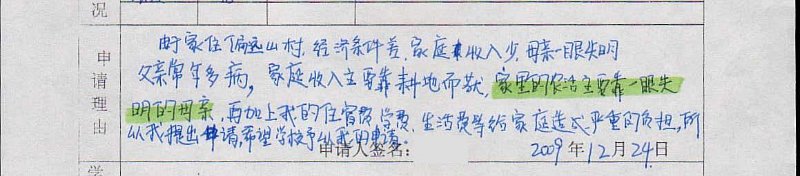 况
申请理由
由于家住偏远山村,经济条件差,家庭收入少,母亲一眼失明
父亲常年多病,家庭收入主要靠耕地而获,家里的农活主要靠一眼失
明的母亲,再加上我的住宿费,学费,生活费等给家庭造成严重的负担,所
以我提出申请,希望学校予以我的申请。
申请人签名:
2009年12月24日
学